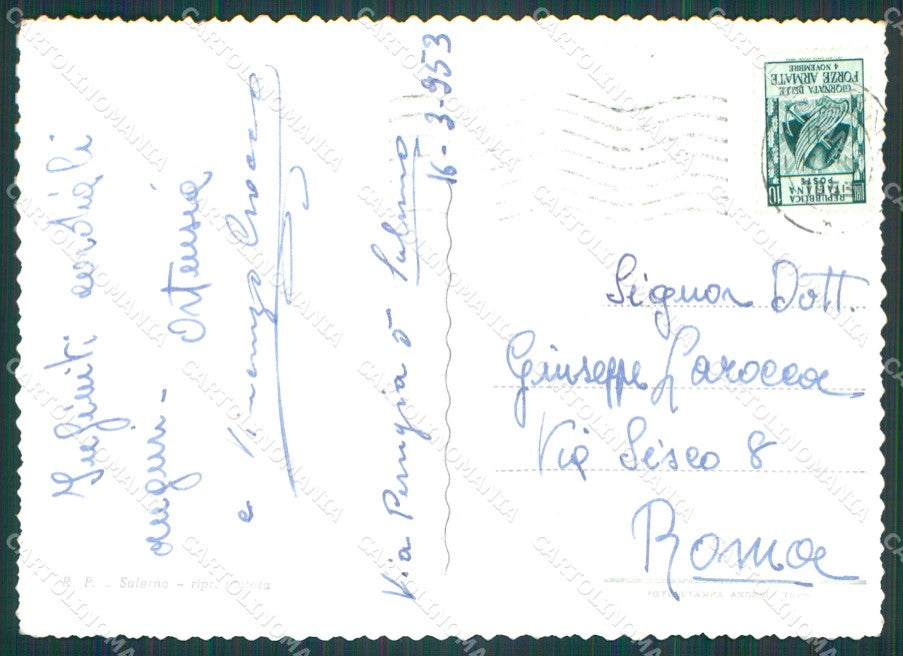 Infiniti cordiali
auguri - Ortensia
e Vincenzo Crocco
Via Perugia 5 Salerno
16-3-953
GIORNATA DELLE
FORZE ARMATE
4 NOVEMBRE
REPUBBLICA
ITALIANA
POSTE
10
Signor Dott.
Giuseppe Larocca
Via Sisco 8
Roma
R. P. - Salerno - ripr. vietata
CARTOLINOMANIA